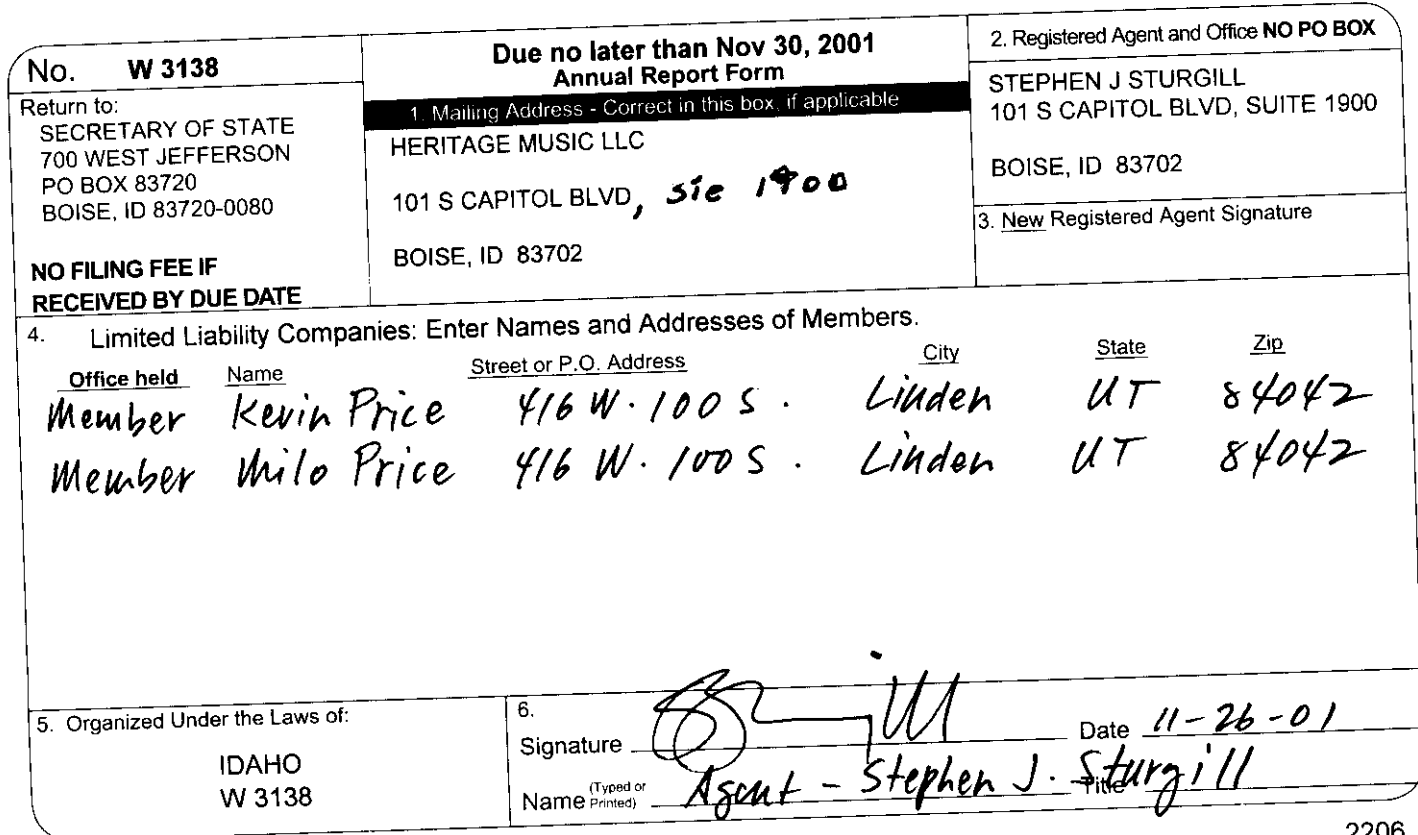 No. W 3138
Return to:
SECRETARY OF STATE
700 WEST JEFFERSON
PO BOX 83720
BOISE, ID 83720-0080
NO FILING FEE IF
RECEIVED BY DUE DATE
Due no later than Nov 30, 2001
Annual Report Form
1. Mailing Address - Correct in this box, if applicable
HERITAGE MUSIC LLC
101 S CAPITOL BLVD, Ste 1900
BOISE, ID 83702
2. Registered Agent and Office NO PO BOX
STEPHEN J STURGILL
101 S CAPITOL BLVD, SUITE 1900
BOISE, ID 83702
3. New Registered Agent Signature
4. Limited Liability Companies: Enter Names and Addresses of Members.
Office held Name Street or P.O. Address City State Zip
Member Kevin Price 416 W. 100 S. Linden UT 84042
Member Milo Price 416 W. 100 S. Linden UT 84042
5. Organized Under the Laws of:
IDAHO
W 3138
6.
Signature Date 11-26-01
Name (Typed or Printed) Agent - Stephen J. Sturgill Title
2206